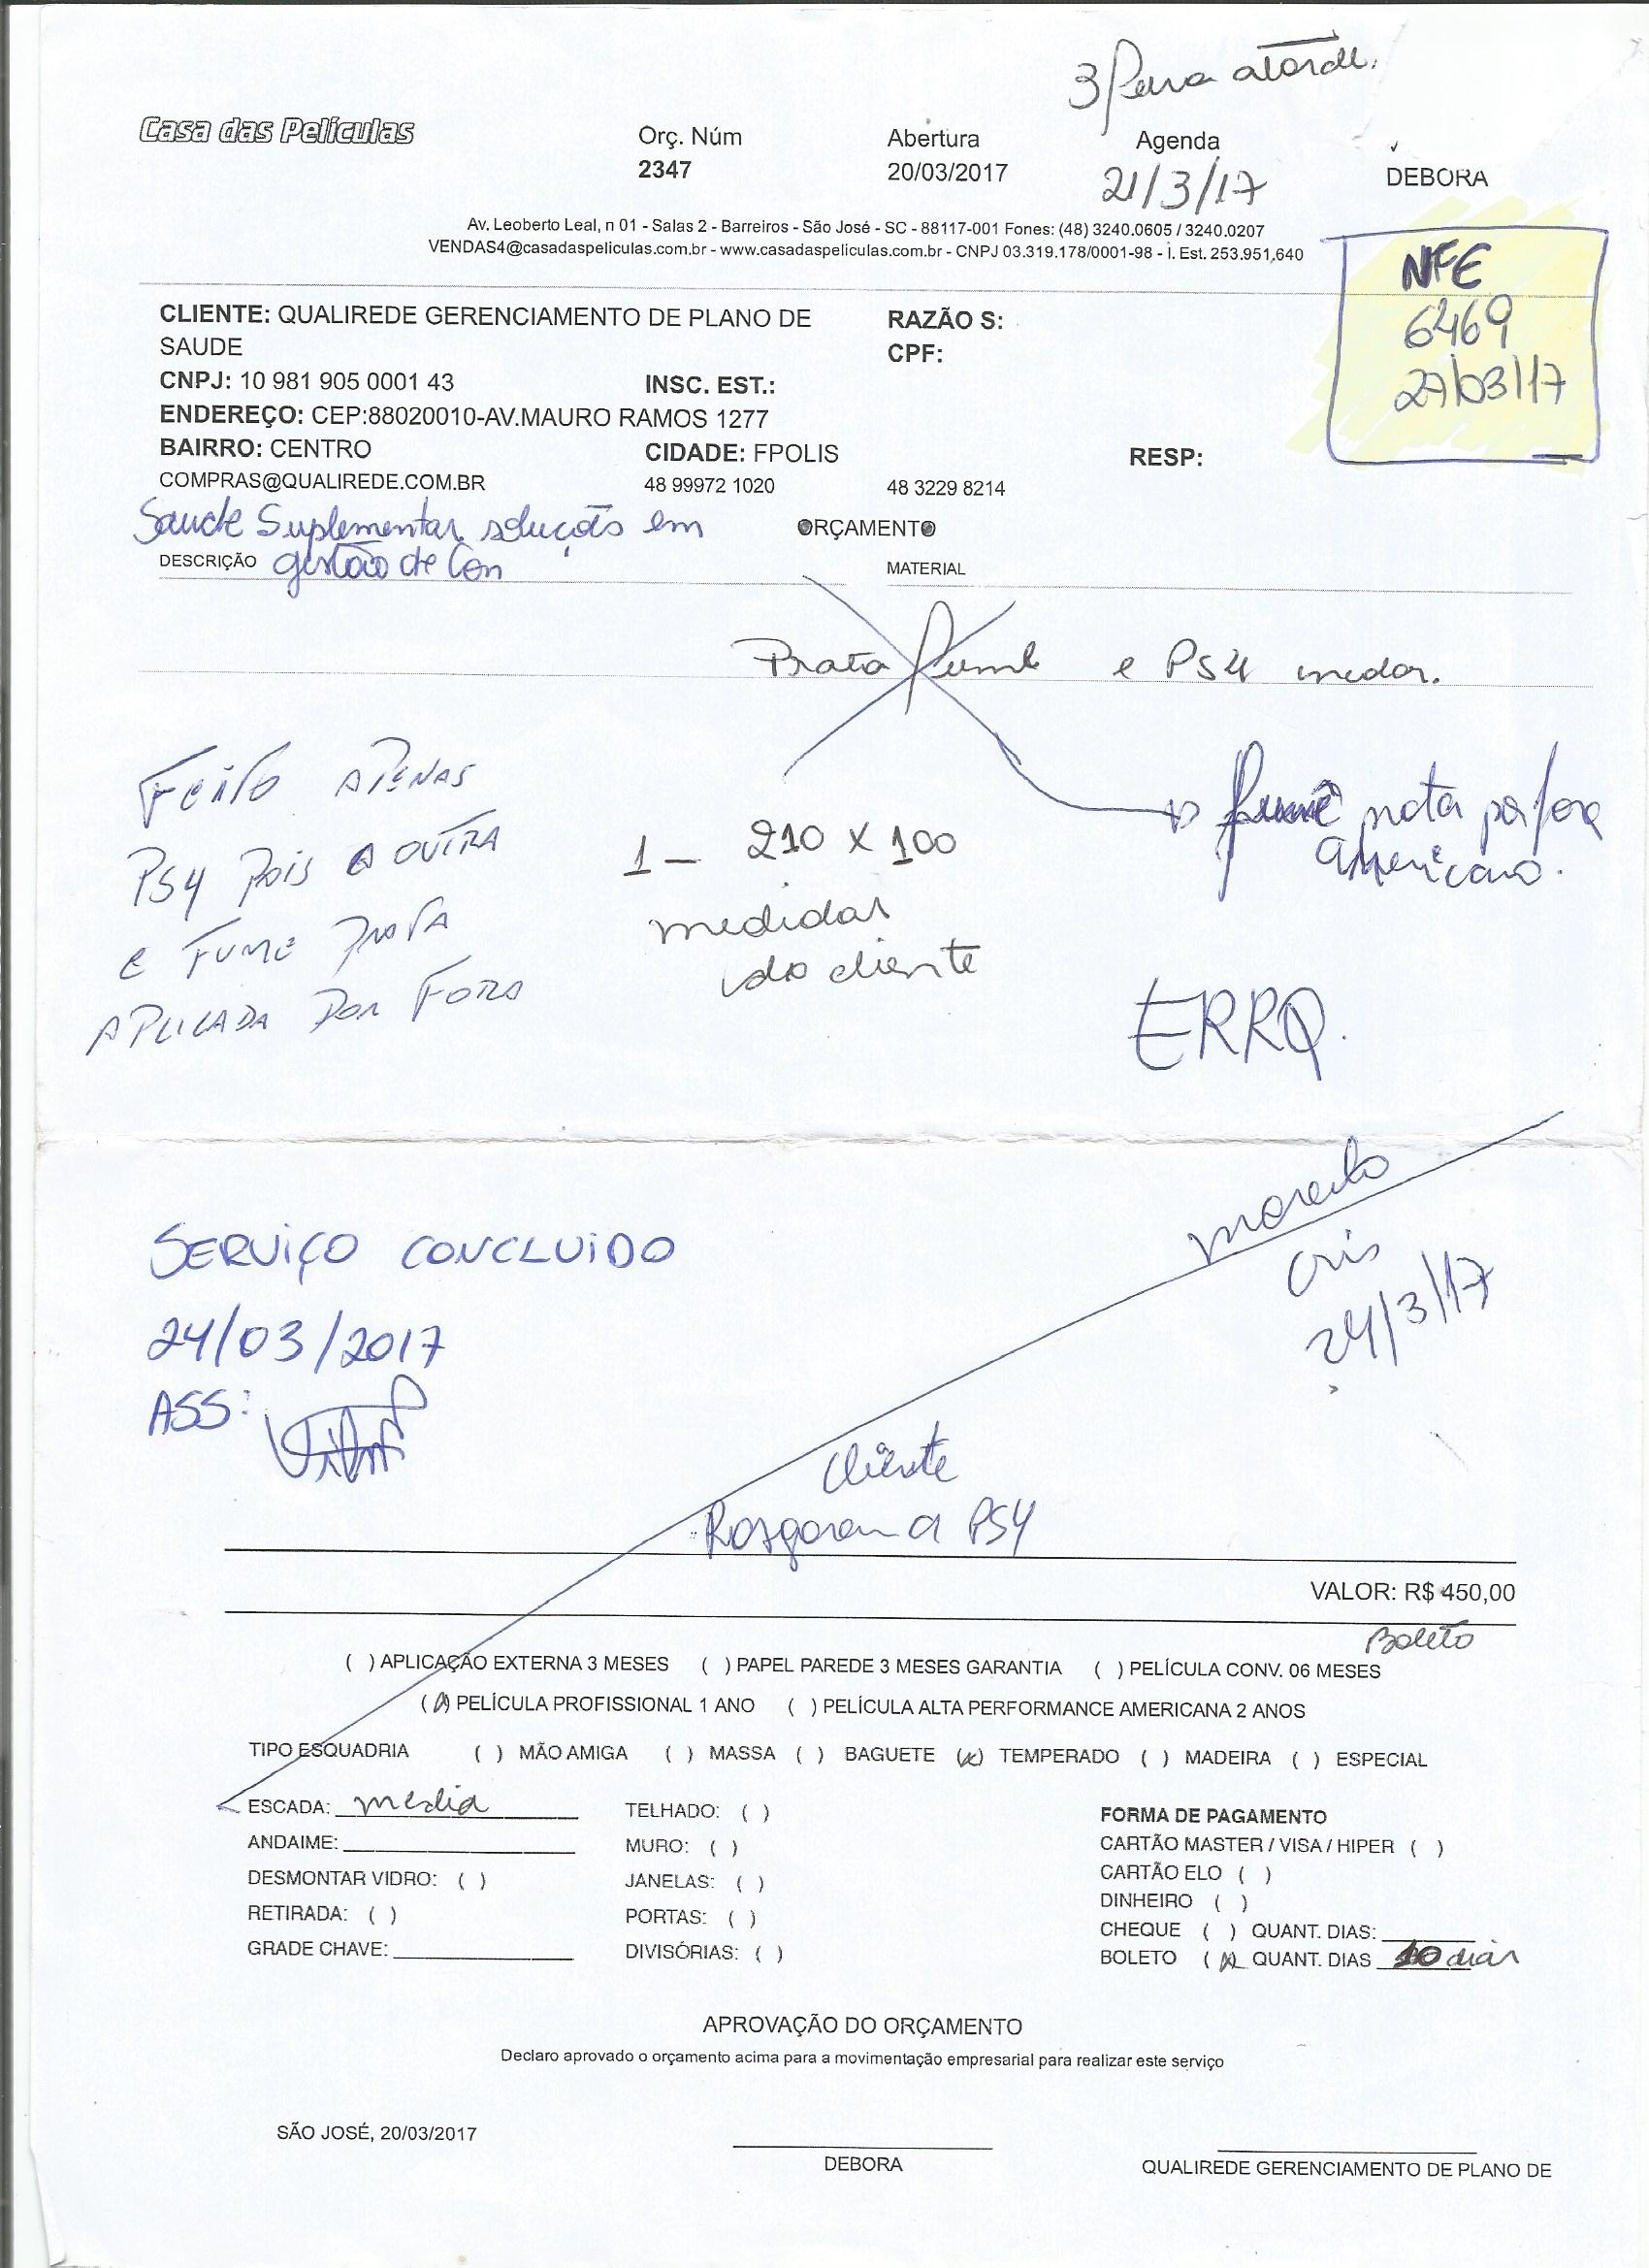 3 feira atarde.
Casa das Películas
Orç. Núm Abertura Agenda
2347 20/03/2017 21/3/17 DEBORA
Av. Leoberto Leal, n 01 - Salas 2 - Barreiros - São José - SC - 88117-001 Fones: (48) 3240.0605 / 3240.0207
VENDAS4@casadaspeliculas.com.br - www.casadaspeliculas.com.br - CNPJ 03.319.178/0001-98 - i. Est. 253.951,640
NFE
6469
27/03/17
CLIENTE: QUALIREDE GERENCIAMENTO DE PLANO DE
SAUDE
RAZÃO S:
CPF:
CNPJ: 10 981 905 0001 43 INSC. EST.:
ENDEREÇO: CEP:88020010-AV.MAURO RAMOS 1277
BAIRRO: CENTRO CIDADE: FPOLIS RESP:
COMPRAS@QUALIREDE.COM.BR 48 99972 1020 48 3229 8214
Saude Suplementar soluções em
ORÇAMENTO
DESCRIÇÃO gestão de Con MATERIAL
Prata fumê e PS4 incolor.
fumê prata por fora
Americano.
FEITO APENAS
PS4 POIS A OUTRA
E FUME PRATA
APLICADA POR FORA
1 - 210 x 100
medidas
do cliente
ERRO.
SERVIÇO CONCLUIDO
24/03/2017
ASS:
Cris
24/3/17
Cliente
Rasgaram a PS4
VALOR: R$ 450,00
Boleto
( ) APLICAÇÃO EXTERNA 3 MESES ( ) PAPEL PAREDE 3 MESES GARANTIA ( ) PELÍCULA CONV. 06 MESES
(x) PELÍCULA PROFISSIONAL 1 ANO ( ) PELÍCULA ALTA PERFORMANCE AMERICANA 2 ANOS
TIPO ESQUADRIA ( ) MÃO AMIGA ( ) MASSA ( ) BAGUETE (x) TEMPERADO ( ) MADEIRA ( ) ESPECIAL
ESCADA: media TELHADO: ( ) FORMA DE PAGAMENTO
ANDAIME: MURO: ( ) CARTÃO MASTER / VISA / HIPER ( )
DESMONTAR VIDRO: ( ) JANELAS: ( ) CARTÃO ELO ( )
DINHEIRO ( )
RETIRADA: ( ) PORTAS: ( ) CHEQUE ( ) QUANT. DIAS:
GRADE CHAVE: DIVISÓRIAS: ( ) BOLETO (x) QUANT. DIAS 10 dias
APROVAÇÃO DO ORÇAMENTO
Declaro aprovado o orçamento acima para a movimentação empresarial para realizar este serviço
SÃO JOSÉ, 20/03/2017
DEBORA QUALIREDE GERENCIAMENTO DE PLANO DE